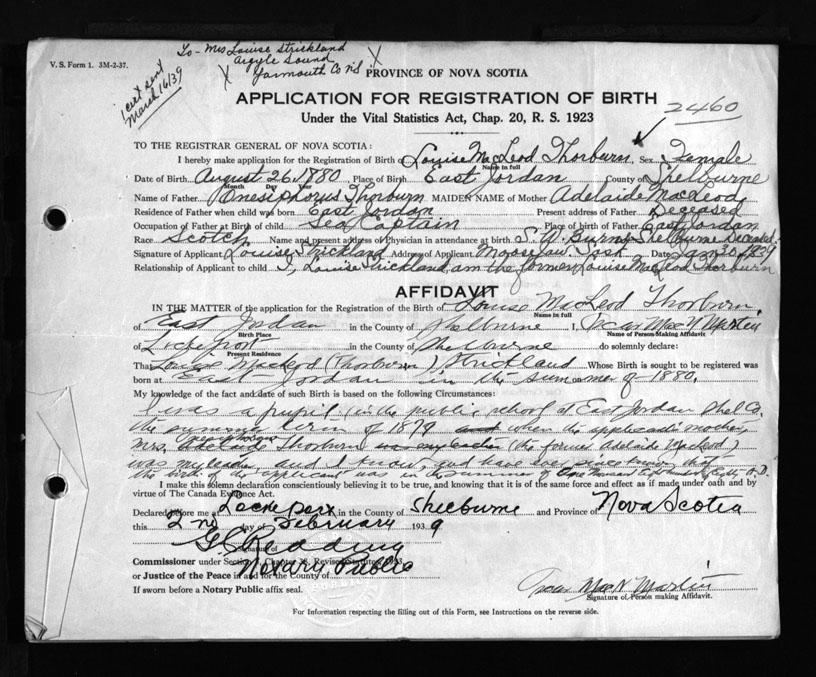 To - Mrs Louise Strickland
Argyle Sound
Yarmouth Co N.S
1 cert sent
March 16/39
V. S. Form 1. 3M-2-37.
PROVINCE OF NOVA SCOTIA
APPLICATION FOR REGISTRATION OF BIRTH
2460
Under the Vital Statistics Act, Chap. 20, R. S. 1923
TO THE REGISTRAR GENERAL OF NOVA SCOTIA:
I hereby make application for the Registration of Birth of Louise MacLeod Thorburn, Sex Female
Name in full
Date of Birth August 26, 1880 Place of Birth East Jordan County of Shelburne
Month Day Year
Name of Father Onesiphorus Thorburn MAIDEN NAME of Mother Adelaide MacLeod
Residence of Father when child was born East Jordan Present address of Father Deceased
Occupation of Father at Birth of child Sea Captain Place of birth of Father East Jordan
Race Scotch Name and present address of Physician in attendance at birth S. W. Burns Shelburne Deceased
Signature of Applicant Louise Strickland Address of Applicant Moosejaw Sask Date Jan 30 1939
Relationship of Applicant to child I, Louise Strickland am the former Louise MacLeod Thorburn
AFFIDAVIT
IN THE MATTER of the application for the Registration of the Birth of Louise MacLeod Thorburn,
Name in full
of East Jordan in the County of Shelburne I, Oscar MacN Martin
Birth Place
Name of Person Making Affidavit
of Lockeport in the County of Shelburne do solemnly declare:
Present Residence
That Louise MacLeod (Thorburn) Strickland Whose Birth is sought to be registered was
born at East Jordan in the summer of 1880.
My knowledge of the fact and date of such Birth is based on the following Circumstances:
I was a pupil in the public school at East Jordan Shel Co.
the summer term of 1879 when the applicant's mother,
Mrs. Thorburn (the former Adelaide MacLeod)
was my teacher and I know
the birth of the applicant was in the summer of A.D.
I make this solemn declaration conscientiously believing it to be true, and knowing that it is of the same force and effect as if made under oath and by
virtue of The Canada Evidence Act.
Declared before me at Lockeport in the County of Shelburne and Province of Nova Scotia
this 2nd day of February 1939
G. S. Redding
Signature of
Notary Public
Commissioner under Section, Chapter 38, Revised Statutes 1923.
or Justice of the Peace in and for the County of
If sworn before a Notary Public affix seal.
Oscar MacN Martin
Signature of Person making Affidavit.
For Information respecting the filling out of this Form, see Instructions on the reverse side.